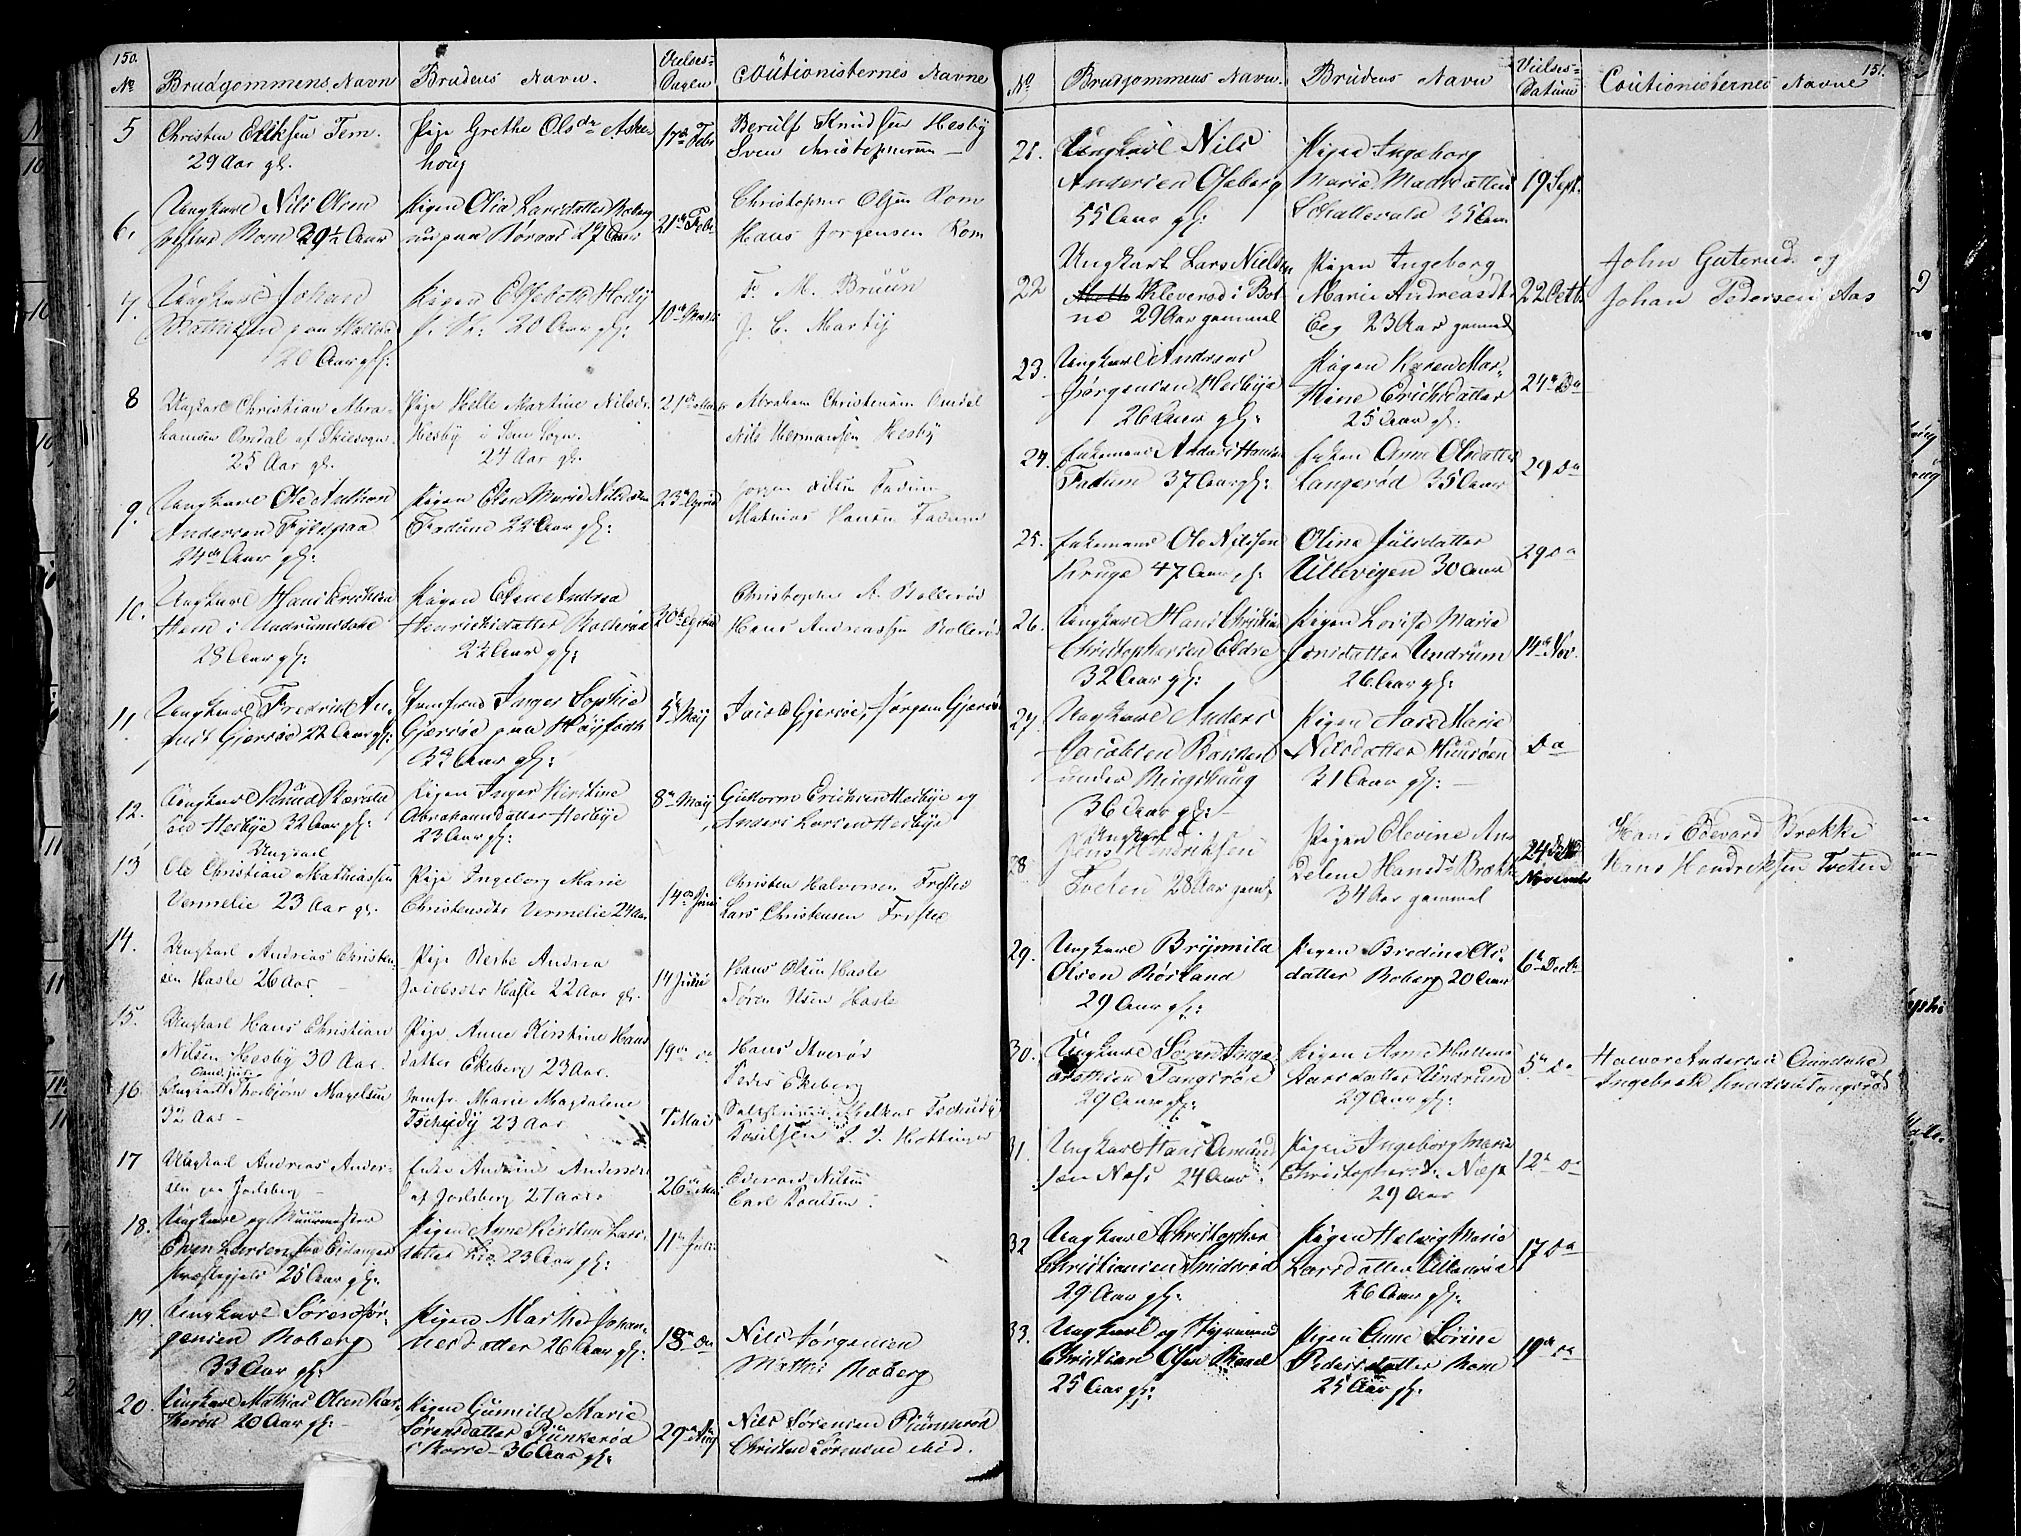 150.
No
Brudgommens Navn
Brudens Navn.
Vielses-
Dagen
Coutionisternes Navne
5
Christen Eriksen Tem.
29 Aar gl.
Pige Grethe Olsdr Aske-
houg
17de Febr
Berulf Knudsen Hesby
Sven Christophersen
6.
Ungkarl Nils Olsen
Rom 29½ Aar
Pigen Olia Larsdatter Roberg
nu paa 27 Aar
21de Febr
Christopher Olsen Rom
Hans Jørgensen Rom
7.
Ungkarl Johan
20 Aar gl:
Pigen Elsebeth Hesby
20 Aar gl:
10de Marts
F. M. Bruun
J. C. Marby
8
Ungkarl Christian Abra-
hamsen Omdal af Skiesogn.
25 Aar gl.
Pige Helle Martine Nilsdr
Hesby i Sem Sogn.
24 Aar gl.
21de Marts
Abraham Christensen Omdal
Nils Hermansen Hesby
9.
Ungkarl Ole Anthon
Andersen Fyldpaa
24de Aar gl:
Pigen Elen Marie Nilsdatter
Fadum 22 Aar gl:
23de April
Jørgen Nilsen Fadum
Mathias Hansen Fadum
10.
Ungkarl Hans Erichsen
Hem i Undrumsdahl
28 Aar gl:
Pigen Elen Andrea
Henrichsdatter Rollerød
22 Aar gl:
30de April
Christopher A. Rollerød
Hans Andreassen Rollerød
11.
Ungkarl Fredrich Au-
gust Gjersøe 22 Aar gl:
Jomfrue Inger Sophie
Gjersøe paa Høyjordt
32 Aar gl:
5te Maij
Jacob Gjersøe, Jørgen Gjersøe
12.
Ungkarl Knud
Hesbye 32 Aar gl:
Pigen Inger Kirstine
Abrahamsdatter Hesbye
23 Aar gl:
8de Maij
Guttorm Erichsen Hesbye og
Anders Larsen Hesbye
13
Ungkarl
Ole Christian Mathiassen
Vermelie 23 Aar gl.
Pige Ingeborg Marie
Christensdtr Vermelie 24 Aar
14de Juni
Christen Halvorsen Freste
Lars Christensen Freste
14.
Ungkarl Andreas Christen-
sen Hasle 26 Aar.
Pige Berthe Andrea
Jacobsdtr Hasle 22 Aar gl.
14 Juni
Hans Olsen Hasle
Søren Olsen Hasle
15.
Ungkarl Hans Christian
Nilsen Hesby 30 Aar.
Pige Anne Kirstine Hans
datter Ekeberg 23 Aar.
19de do
Hans Averød
Peder Ekeberg
16.
Cand. juris
Ungkarl Thorbjørn Magelsen
32 Aar
Jomfr Marie Magdalene
Tschudy 23 Aar
7 Mai
Tschudy
Poulsen J. J. Hottinger
17
Ungkarl Andreas Ander-
sen paa Jarlsberg
Enke Andrine Andersdr
af Jarlsberg 27 Aar.
26de Mai
Edevard Nilsen
Carl Poulsen
18.
Ungkarl og Muurmester
Even Larsen fra Eidanger
Præstegjeld 25 Aar gl:
Pigen Anne Kirstine Lars
datter Kiø 23 Aar gl:
11te Juli
19.
Ungkarl Søren Jør-
gensen Roberg
33 Aar gl:
Pigen Marthe Johan-
nesdatter 26 Aar gl:
18de do
Nils Jørgensen
Mathis Roberg
20.
Ungkarl Mathias Olsen Kar-
20 Aar gl:
Pigen Gunnild Marie
Sørensdatter Rünkerød
i Borre 36 Aar gl:
29de Aug
Nils Sørensen Rünkerød
Christen Sørensen ibid.
151.
No
Brudgommens Navn.
Brudens Navn
Vielses-
Datum
Coutionisternes Navne
21.
Ungkarl Nils
Andersen Oseberg
55 Aar gl:
Pigen Ingeborg
Marie Madsdatter
Schattevold 35 Aar
19 Sept.
22
Ungkarl Lars Nielsen
Kleverød i Bot
ne 29 Aar gammel
Pigen Ingeborg
Marie Andreasdtr
Eeg 23 Aar gammel
22 Octb.
John Guterud og
Johan Pedersen Aas
23.
Ungkarl Andreas
Jørgensen Hesbye
26 Aar gl:
Pigen Karen Mar-
thine Erichsdatter
25 Aar gl.
24de Do
24.
Enkemand Anders Hansen
Fadum 37 Aar gl:
Enken Anne Olsdatter
Langerød 35 Aar
29 Do
25.
Enkemand Ole Nilssen
Kruge 47 Aar gl:
Oline Julsdatter
Ultevigen 30 Aar
29 do
26.
Ungkarl Hans Christian
Christophersen Eldre
32 Aar gl:
Pigen Lovise Marie
Jensdatter Undrum
26 Aar gl:
14de Nov.
27.
Ungkarl Anders
Jacobsen Bakken
under Ringshaug
36 Aar gl:
Pigen Aase Marie
Nilsdatter Huusøen
31 Aar gl:
Do
28
Ungkarl
Jens Hendriksen
Tveten 28 Aar gaml.
Pigen Olevine An
delene Hansdr Brække
34 Aar gammel
24de
November
Hans Edevard Brække
Hans Hendriksen Tveten
29.
Ungkarl Brynnild
Olsen Rørland
29 Aar gl:
Pigen Bredine Ols
datter Roberg 20 Aar
6te Decbr
30.
Ungkarl Søren Inge-
brethsen Tangsrøe
29 Aar gl:
Pigen Anne Hellene
Larsdatter Undrum
29 Aar gl:
5te Do
Halvor Andersen Aamdahl
Ingebreth Knudsen Tangsrød
31.
Ungkarl Hans Amund
sen Næss 24 Aar
Pigen Ingeborg Marie
Christophersdr. Næss
29 Aar
12te Do
32
Ungkarl Christopher
Christiansen Smidsrød
29 Aar gl:
Pigen Helvig Marie
Larsdatter
26 Aar gl:
17 Do
33.
Ungkarl og Styrmand
Christian Olsen
25 Aar gl:
Pigen Anne Sørine
Pedersdatter Rom
25 Aar gl:
19de do